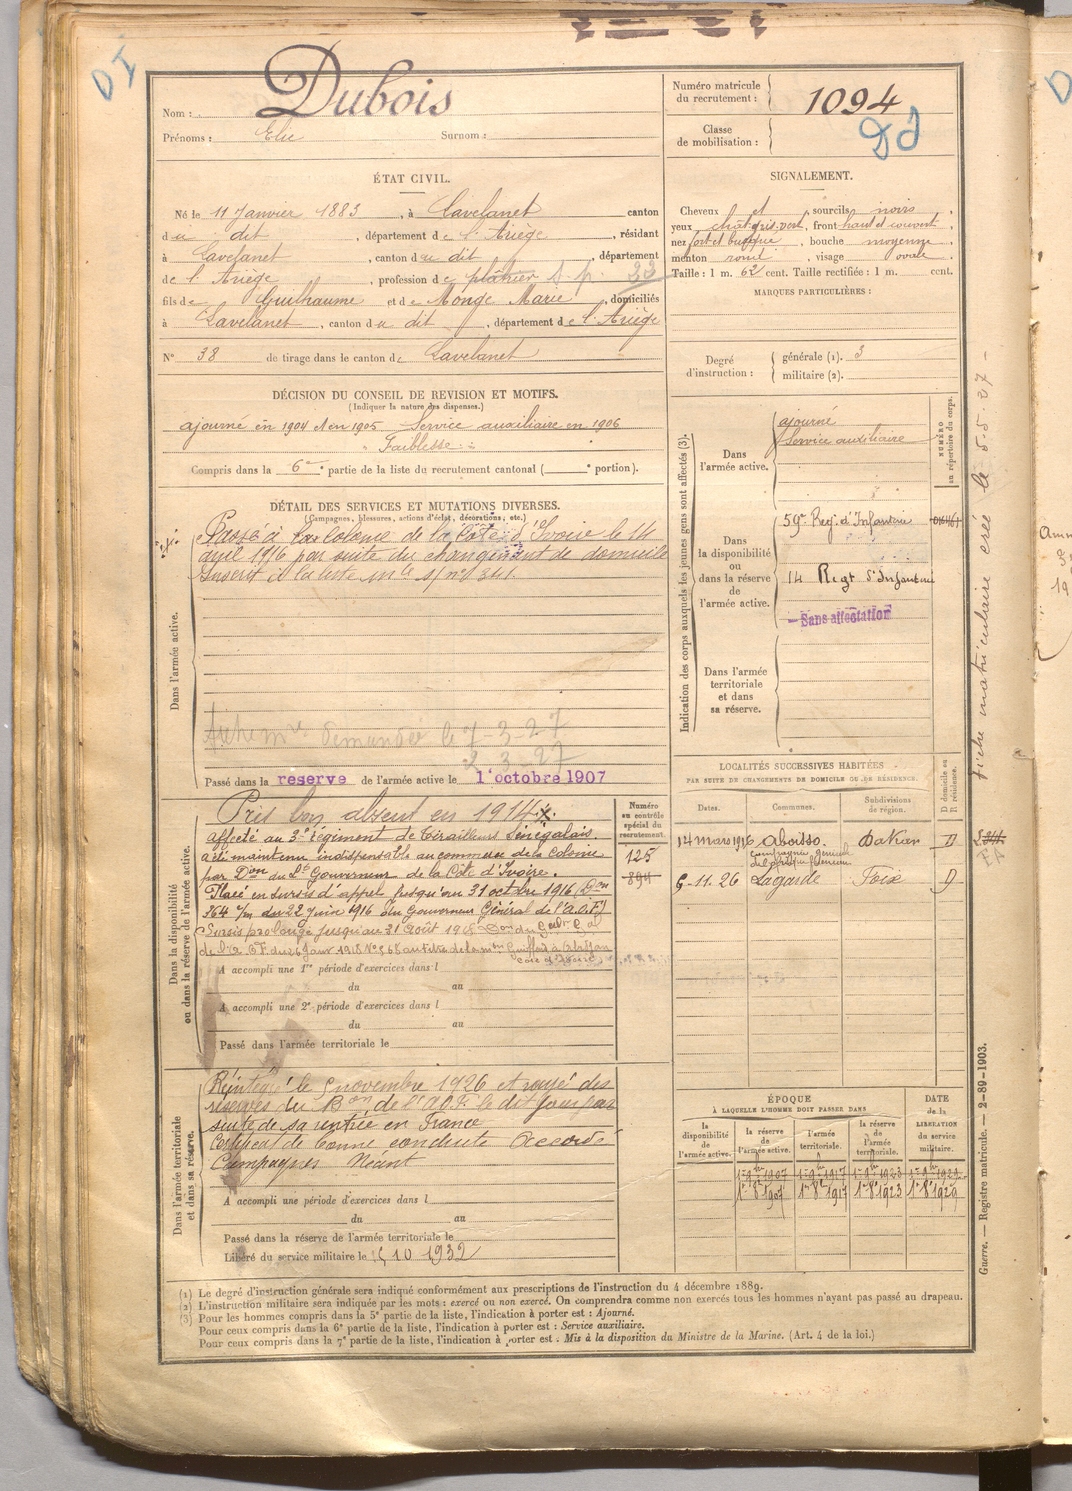 DI
Nom : Dubois
Prénoms : Elie Surnom :
Numéro matricule du recrutement : 1094
Classe de mobilisation :
ÉTAT CIVIL.
Né le 11 Janvier 1883, à Lavelanet canton
du dit, département de l'Ariège, résidant
à Lavelanet, canton du dit, département
de l'Ariège, profession de plâtrier S.P. 33
fils de Guilhaume et de Monge Marie, domiciliés
à Lavelanet, canton du dit, département de l'Ariège
N° 38 de tirage dans le canton de Lavelanet
SIGNALEMENT.
Cheveux et sourcils noirs
yeux chât-gris-vert, front haut et couvert,
nez fort et busqué, bouche moyenne
menton rond, visage ovale
Taille : 1 m. 62 cent. Taille rectifiée : 1 m. cent.
MARQUES PARTICULIÈRES :
Degré d'instruction :
générale (1). 3
militaire (2).
DÉCISION DU CONSEIL DE REVISION ET MOTIFS.
(Indiquer la nature des dispenses.)
ajourné en 1904 et en 1905 Service auxiliaire en 1906
Faiblesse
Compris dans la 6e partie de la liste du recrutement cantonal ( e portion).
DÉTAIL DES SERVICES ET MUTATIONS DIVERSES.
(Campagnes, blessures, actions d'éclat, décorations, etc.)
Dans l'armée active.
Passé à la colonie de la Côte d'Ivoire le 14
avril 1916 par suite du changement de domicile
Inscrit à la liste mle s/n° 1341.
demandée le 7-3-27
2-3-27
Passé dans la reserve de l'armée active le 1er octobre 1907
Indication des corps auxquels les jeunes gens sont affectés (3).
NUMÉRO au répertoire du corps.
Dans l'armée active.
ajourné
Service auxiliaire
Dans la disponibilité ou dans la réserve de l'armée active.
59e Reg. d'Infanterie
14 Regt d'Infanterie
Sans affectation
Dans l'armée territoriale et dans sa réserve.
fiche matriculaire créée le 5-5-27
LOCALITÉS SUCCESSIVES HABITÉES
PAR SUITE DE CHANGEMENTS DE DOMICILE OU DE RÉSIDENCE.
Dates. Communes. Subdivisions de région. D domicile ou R résidence.
14 mars 1916 Aboisso Dakar D
5-11.26 Lagarde Foix D
Dans la disponibilité ou dans la réserve de l'armée active.
Numéro au contrôle spécial du recrutement.
125
894
Pris bon absent en 1914
affecté au 3e régiment de Tirailleurs Sénégalais.
a été maintenu indispensable au commerce de la Colonie
par Don du Lt Gouverneur de la Côte d'Ivoire.
Placé en sursis d'appel jusqu'au 31 octbre 1916 (Don
364 du 22 juin 1916 du Gouverneur Général de l'A.O.F.)
Sursis prolongé jusqu'au 31 Août 1918
A accompli une 1re période d'exercices dans l
du au
A accompli une 2e période d'exercices dans l
du au
Passé dans l'armée territoriale le
Dans l'armée territoriale et dans sa réserve.
Réintégré le 5 novembre 1926 et rayé des
réserves du Bon de l'A.O.F. le dit jour par
suite de sa rentrée en France
Certificat de bonne conduite Accordé
Campagnes Néant
A accompli une période d'exercices dans l
du au
Passé dans la réserve de l'armée territoriale le
Libéré du service militaire le 15 10 1932
ÉPOQUE
À LAQUELLE L'HOMME DOIT PASSER DANS
DATE de la LIBÉRATION du service militaire.
la disponibilité de l'armée active. la réserve de l'armée active. l'armée territoriale. la réserve de l'armée territoriale.
1er 9bre 1907 1er 9bre 1917 1er 9bre 1923 1er 9bre 1929
1er 8bre 1907 1er 8bre 1917 1er 8bre 1923 1er 8bre 1929
Guerre. — Registre matricule. — 2-89-1903.
(1) Le degré d'instruction générale sera indiqué conformément aux prescriptions de l'instruction du 4 décembre 1889.
(2) L'instruction militaire sera indiquée par les mots : exercé ou non exercé. On comprendra comme non exercés tous les hommes n'ayant pas passé au drapeau.
(3) Pour les hommes compris dans la 5e partie de la liste, l'indication à porter est : Ajourné.
Pour ceux compris dans la 6e partie de la liste, l'indication à porter est : Service auxiliaire.
Pour ceux compris dans la 7e partie de la liste, l'indication à porter est : Mis à la disposition du Ministre de la Marine. (Art. 4 de la loi.)